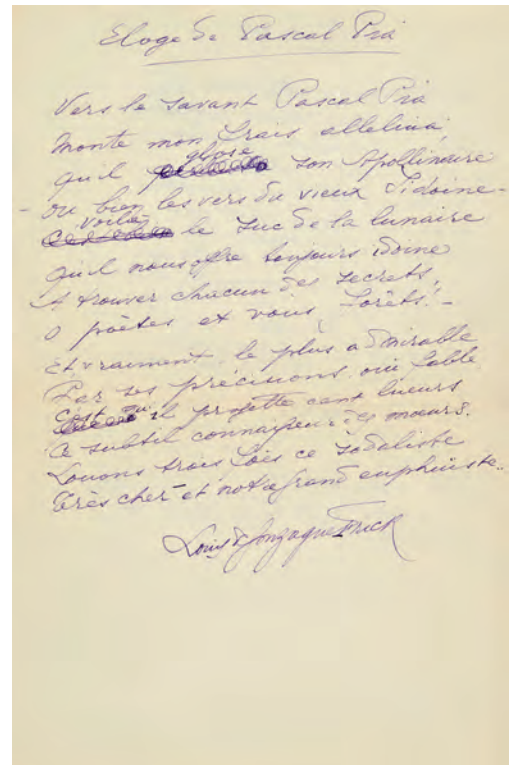 Eloge de Pascal Pia
Vers le savant Pascal Pia
Monte mon frais alleluia,
Qu'il glose son Apollinaire
- Ou bien les vers du vieux Sidoine -
voilà le suc de la lunaire
Qu'il nous offre toujours idoine
A trouver chacun des secrets,
O poètes et vous, forêts. -
Et vraiment le plus admirable
Par ses précisions oui fable
C'est qu'il projette cent lueurs
Ce subtil connaisseur des mœurs.
Louons trois fois ce sodaliste
Très cher et notre grand euphuiste..
Louis de Gonzague Frick